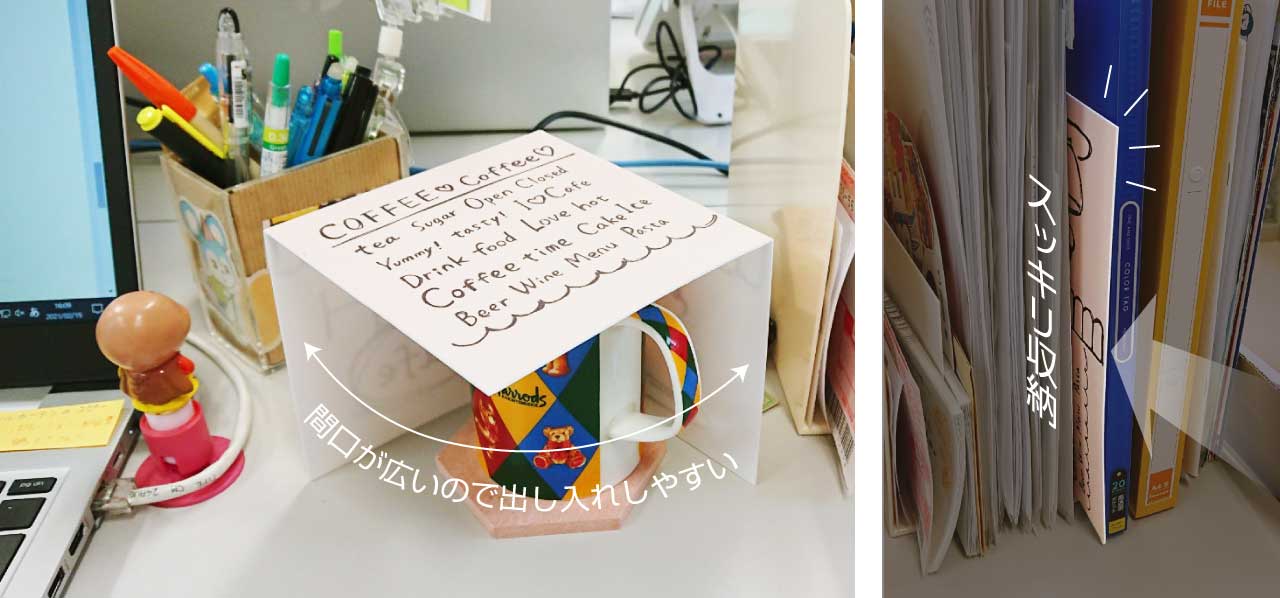 COFFEE♡Coffee♡
tea Sugar Open Closed
Yummy! tasty! I♡Cafe
Drink food Love hot
Coffee time Cake Ice
Beer Wine Menu Pasta
間口が広いので出し入れしやすい
16:09
pg up
FILE
ペシャンコ収納
COLOR TAG
20